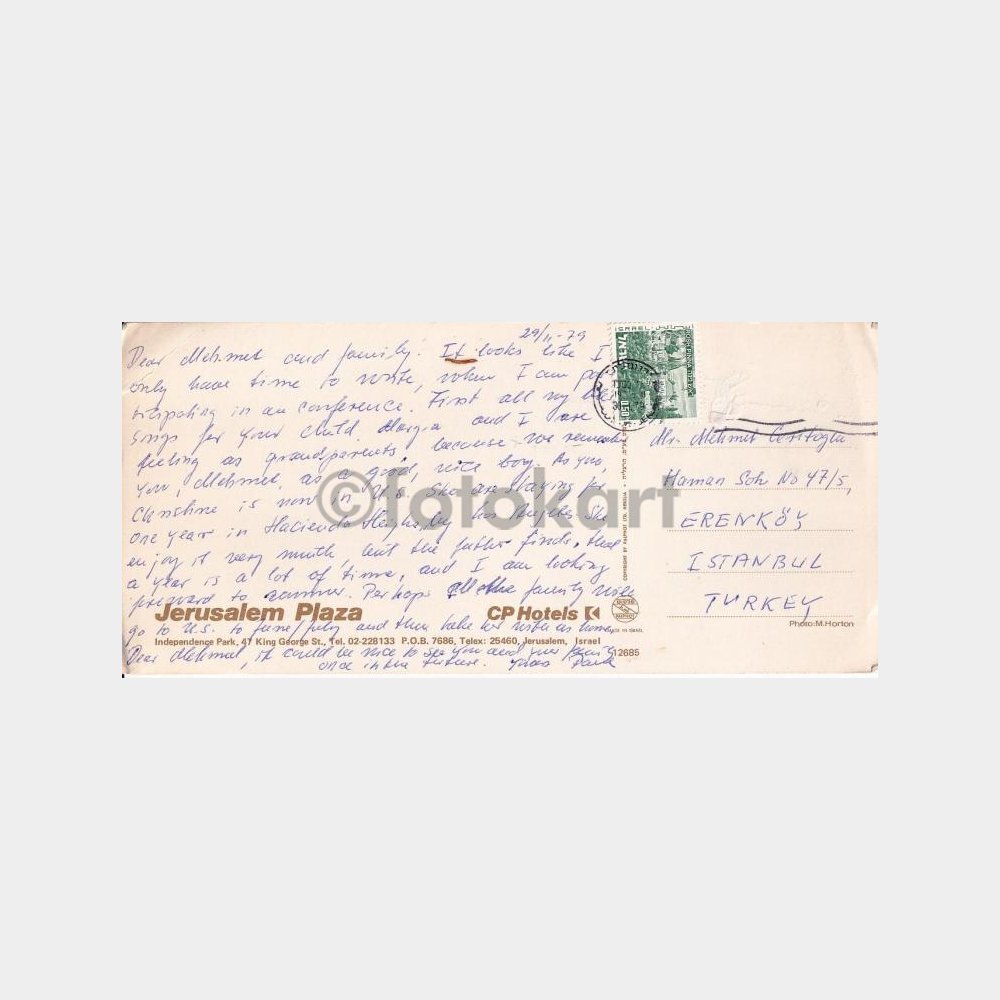 29/11-79
Dear Mehmet and family! It looks like I
only have time to write, when I am par-
ticipating in an conference. First all my bles-
sings for your child. Margia and I are
feeling as grandparents, because we remember
you, Mehmet, as a good, nice boy. As you,
Christine is now in U.S. She are staying for
one year in Hacienda Heights, by Los Angeles. She
enjoy it very much, but the father finds, that
a year is a lot of time, and I am looking
forward to summer. Perhaps all the family will
go to U.S. to june/july and then take her with us home.
Dear Mehmet, it could be nice to see you and your family
once in the future. Yours
Jerusalem Plaza
CP Hotels
Independence Park, 47 King George St., Tel. 02-228133 P.O.B. 7686, Telex: 25460, Jerusalem, Israel
COPYRIGHT BY PALPHOT LTD. HERZLIA
MADE IN ISRAEL
12685
ISRAEL
ישראל
0.50
Mr. Mehmet
Haman Sok No 47/5,
ERENKÖY
ISTANBUL
TURKEY
Photo: M. Horton
©fotokart